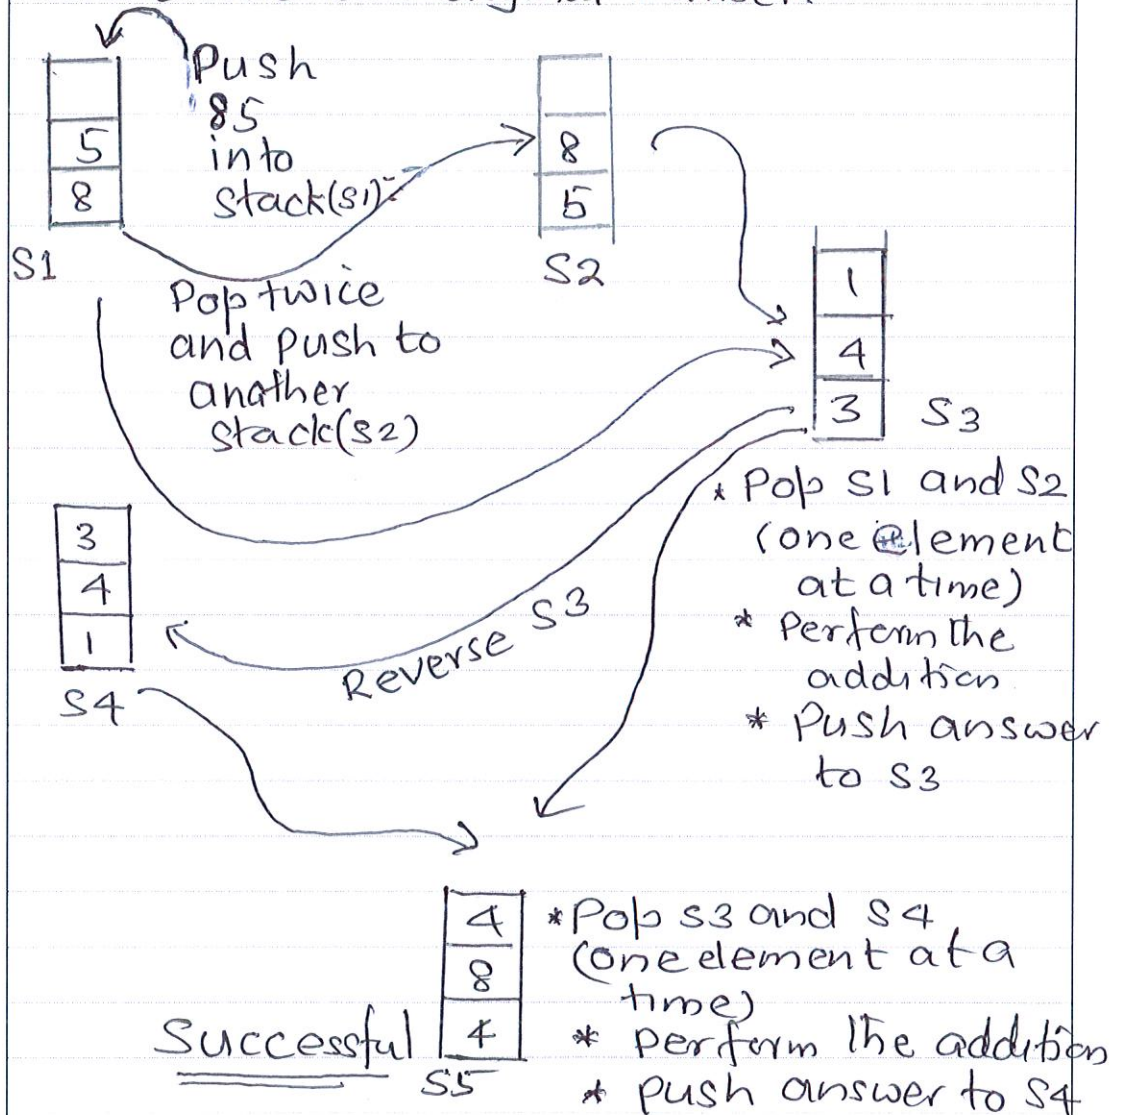 Push
85
into
stack(S1)
5
8
S1
8
5
S2
Pop twice
and push to
another
stack(S2)
1
4
3
S3
* Pop S1 and S2
(one element
at a time)
* Perform the
addition
* Push answer
to S3
3
4
1
S4
Reverse S3
4
8
4
S5
Successful
* Pop S3 and S4
(one element at a
time)
* perform the addition
* push answer to S4